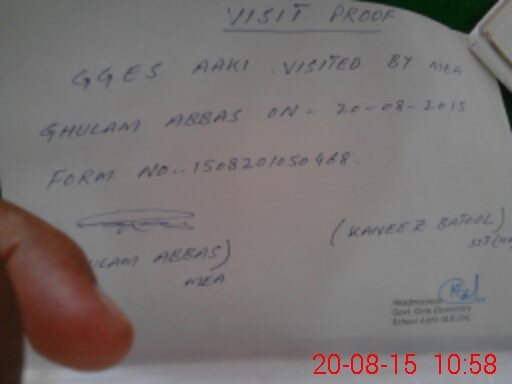 VISIT PROOF
GGES AAKI. VISITED BY MEA
GHULAM ABBAS ON- 20-08-2015
FORM NO:-1508201050468.
(KANEEZ BATOOL)
ULAM ABBAS)
SST
MEA
Headmistress
Govt. Girls Elementary
School
20-08-15 10:58